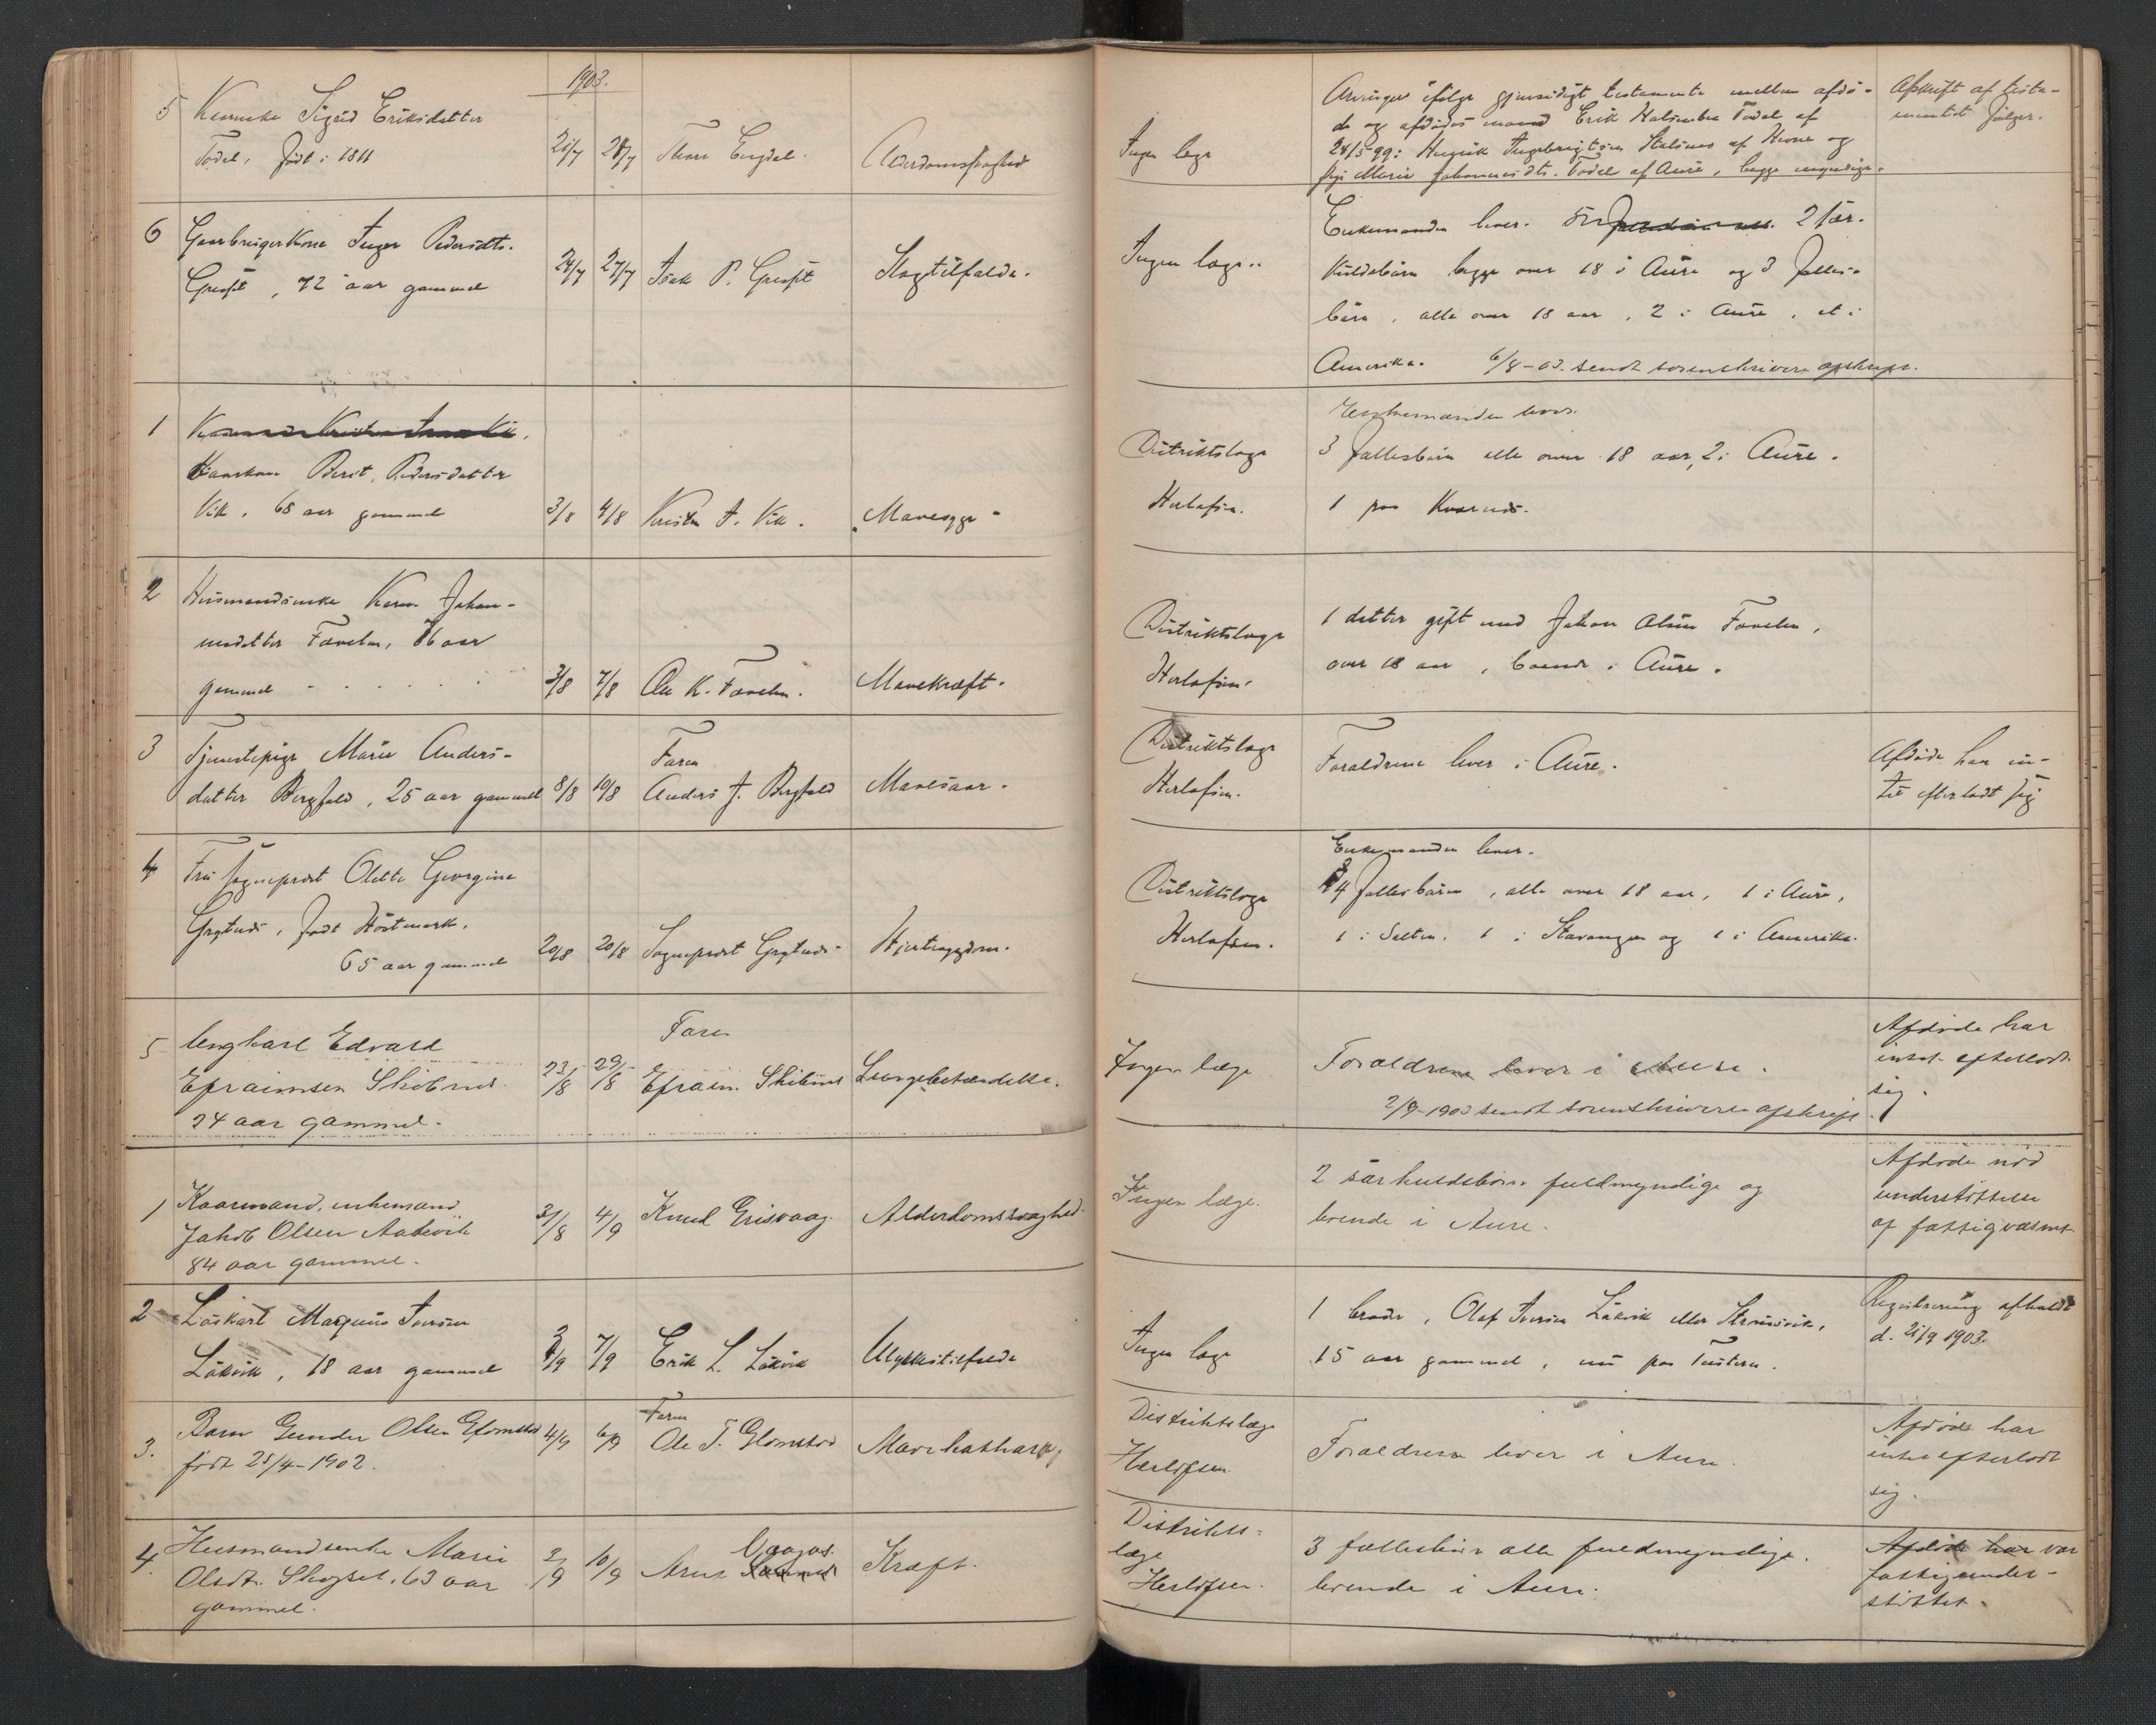 1903.
5 Sigrid Eriksdatter
Todal, født i 1811
21/7 28/7 Thore Engdal. Alderdomssvaghed
Ingen læge
Arvinger ifølge gjensidigt testamente mellem afdø-
de og afdødes mand Erik Halvorsen Todal af
24/5-99: Henrik Ingebrigtsen af og
pige Marie Johannesdtr. Todal af Aure, begge umyndige.
Afskrift af testa-
mentet følger.
6 Gaardbrugerkone Inger Pedersdtr.
Gresset, 72 aar gammel
24/7 27/7 Isak P. Gresset Slagtilfælde.
Ingen læge.
Enkemanden lever. 2 sær-
kuldsbørn begge over 18 i Aure og 3 fælles-
børn, alle over 18 aar, 2 i Aure, et i
Amerika. 6/8-03. sendt sorenskriveren afskrift.
1
Kaarkone Berit Pedersdatter
Vik, 68 aar gammel
3/8 4/8 Kristen I. Vik. "Mavesyge"
Distriktslæge
Herlofsen.
Enkemanden lever.
3 fællesbørn alle over 18 aar, 2 i Aure.
1 paa
2 Husmandsenke Karen Johan-
nesdatter Tævelen, 76 aar
gammel
3/8 7/8 Ole K. Tævelen. Mavekræft.
Distriktslæge
Herlofsen.
1 datter gift med Johan Olsen Tævelen,
over 18 aar, boende i Aure.
3 Tjenestepige Marie Anders-
datter Bergfald, 25 aar gammel
8/8 10/8
Faren
Anders J. Bergfald Mavesaar.
Distriktslæge
Herlofsen.
Forældrene lever i Aure.
Afdøde har in-
tet efterladt sig
4 Fru sogneprest Olette Georgine
Grytnes, født Høstmark.
65 aar gammel
20/8 20/8 Sogneprest Grytnes Hjertesygdom.
Distriktslæge
Herlofsen.
Enkemanden lever.
4 fællesbørn, alle over 18 aar, 1 i Aure,
1 i Salten, 1 i Stavanger og 1 i Amerika.
5 Ungkarl Edvard
Efraimsen Skibnes
24 aar gammel.
23/8 29/8
Faren
Efraim Skibnes Lungebetændelse.
Ingen læge
Forældrene lever i Aure.
2/9-1903 sendt sorenskriveren afskrift
Afdøde har
intet efterladt
sig.
1 Kaarmand, enkemand
Jakob Olsen Aakvik
84 aar gammel.
31/8 4/9 Knud Grisvaag. Alderdomssvaghed.
Ingen læge.
2 særkuldsbørn fuldmyndige og
boende i Aure.
Afdøde nød
understøttelse
af fattigvæsnet
2 Løskarl Magnus Iversen
Løkvik, 18 aar gammel
3/9 7/9 Erik L. Løkvik Ulykkestilfælde
Ingen læge
1 broder, Olaf Iversen Løkvik eller Strømsvik,
15 aar gammel, nu paa Tustern.
Registrering afholdt
d. 21/9 1903.
3. Barn Gunder Olsen Glomstad
født 25/4-1902.
4/9 6/9
Faren
Ole T. Glomstad Mavekatharr,
Distriktslæge
Herlofsen.
Forældrene lever i Aure.
Afdøde har
intet efterladt
sig.
4. Husmandsenke Marie
Olsdtr. Skogset, 63 aar
gammel.
3/9 10/9 Arnt Vaagos. Kræft.
Distrikts-
læge
Herlofsen.
3 fællesbørn alle fuldmyndige.
boende i Aure.
Afdøde har var
fattigunder-
støttet.